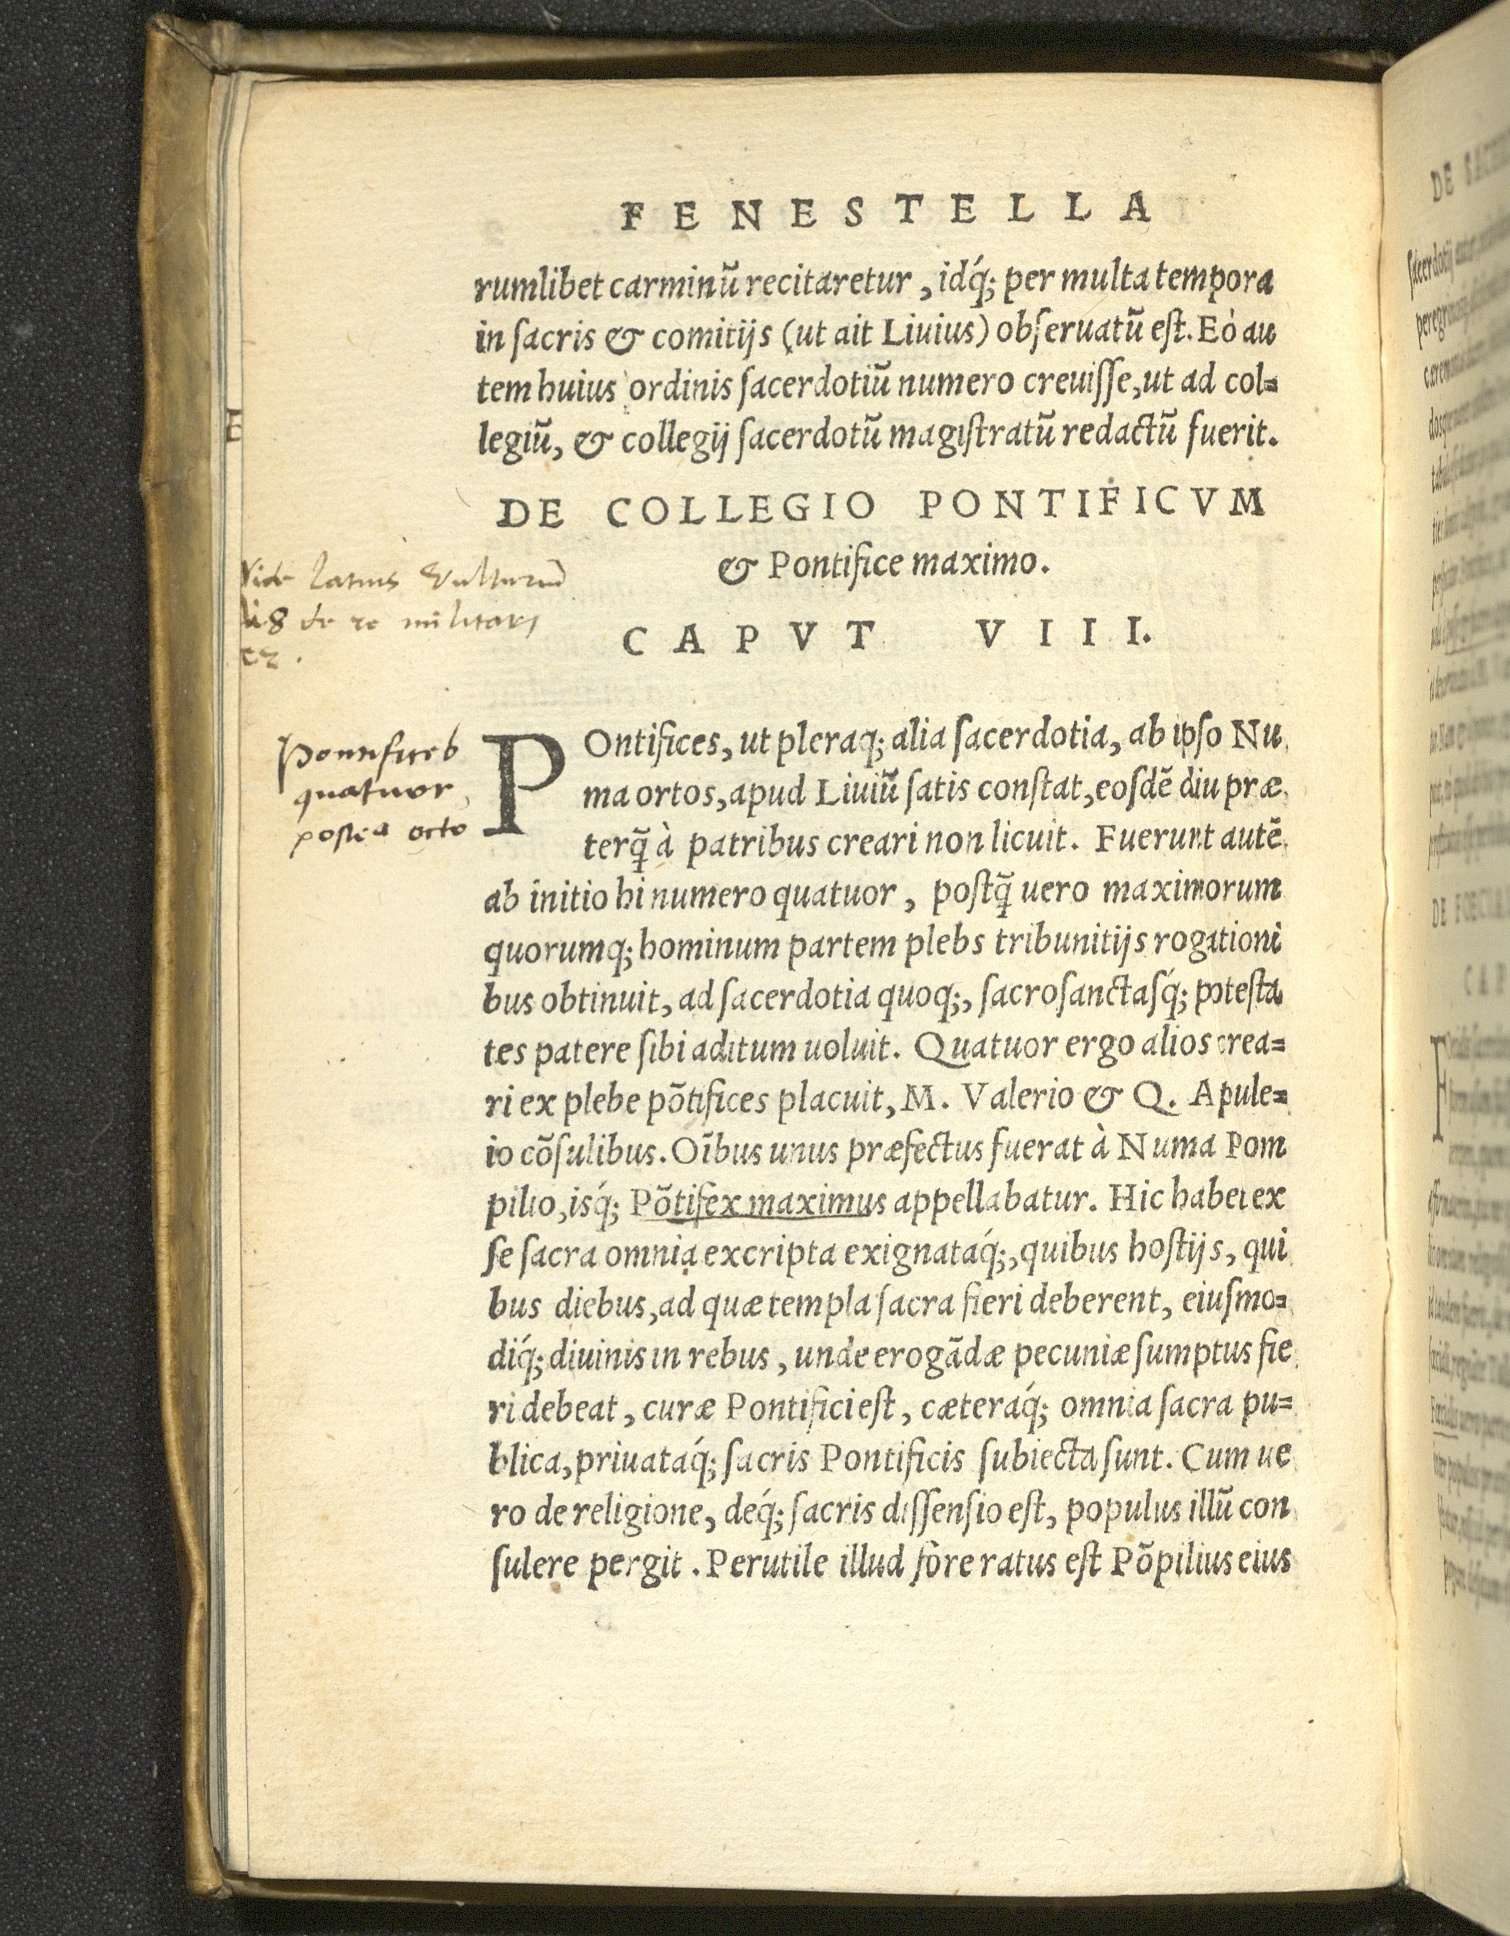 FENESTELLA
rumlibet carminũ recitaretur, idq́; per multa tempora
in sacris & comitijs (ut ait Liuius) obseruatũ est. Eò au
tem huius ordinis sacerdotiũ numero creuisse, ut ad col=
legiũ, & collegij sacerdotũ magistratũ redactũ fuerit.
DE COLLEGIO PONTIFICVM
& Pontifice maximo.
Vide latius
li 8 de re militari
CAPVT VIII.
Pontifices
quatuor
postea octo
POntifices, ut pleraq; alia sacerdotia, ab ipso Nu
ma ortos, apud Liuiũ satis constat, eosdẽ diu præ
terq̃ à patribus creari non licuit. Fuerunt autẽ
ab initio hi numero quatuor, postq̃ uero maximorum
quorumq; hominum partem plebs tribunitijs rogationi
bus obtinuit, ad sacerdotia quoq;, sacrosanctasq́; potesta
tes patere sibi aditum uoluit. Quatuor ergo alios crea=
ri ex plebe põtifices placuit, M. Valerio & Q. Apule=
io cõsulibus. Oĩbus unus præfectus fuerat à Numa Pom
pilio, isq́; Põtifex maximus appellabatur. Hic habet ex
se sacra omnia excripta exignataq́;, quibus hostijs, qui
bus diebus, ad quæ templa sacra fieri deberent, eiusmo=
diq́; diuinis in rebus, unde erogãdæ pecuniæ sumptus fie
ri debeat, curæ Pontifici est, cæteraq́; omnia sacra pu=
blica, priuataq́; sacris Pontificis subiecta sunt. Cum ue
ro de religione, deq́; sacris dissensio est, populus illũ con
sulere pergit. Perutile illud fòre ratus est Põpilius eius